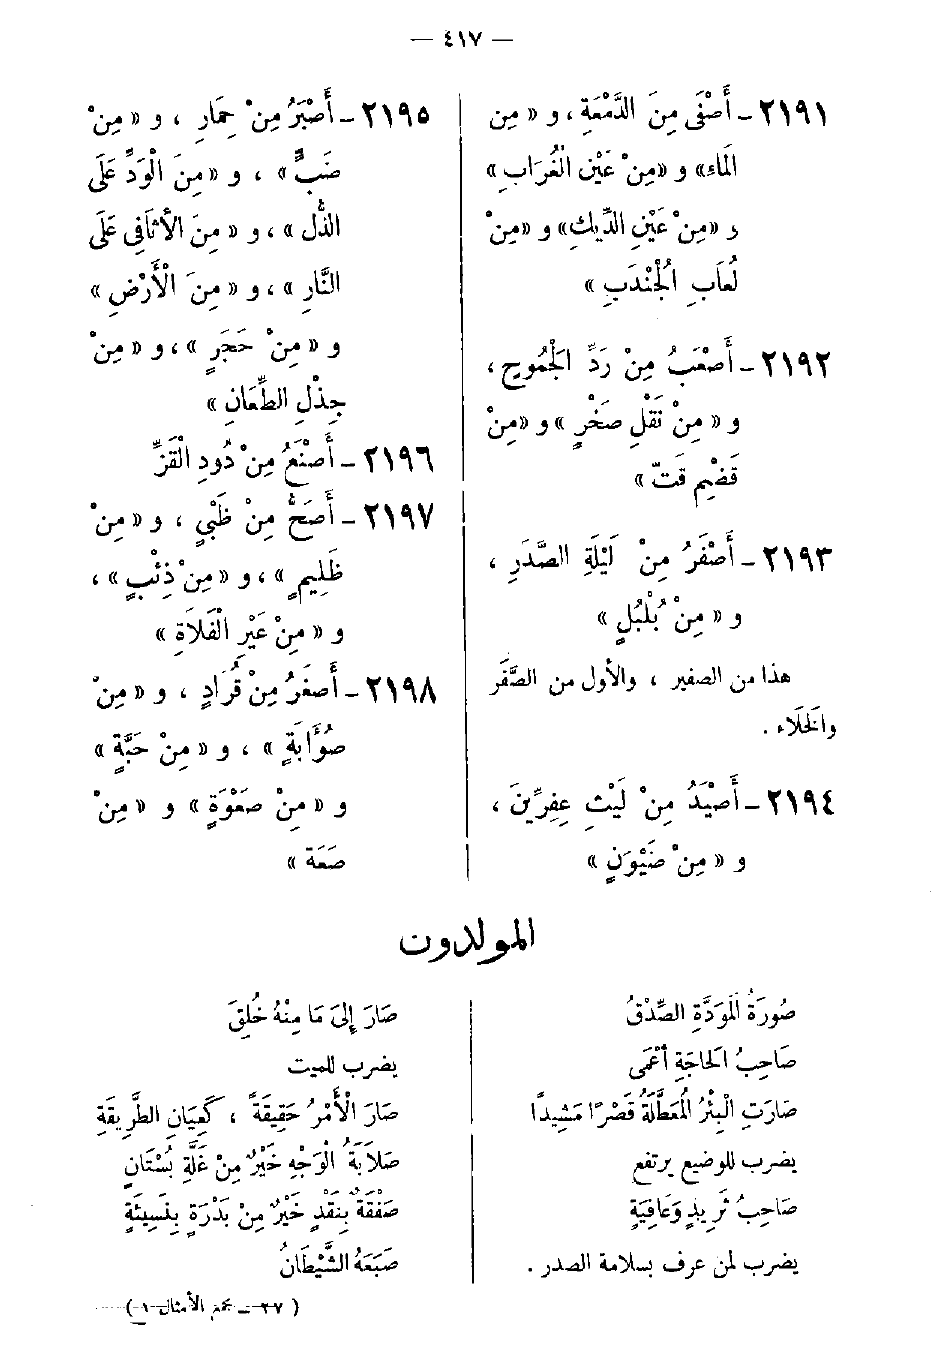 — ٤١٧ —
٢١٩١ – أَصْفَى مِنَ الدَّمْعَةِ ، و « مِن
الْمَاءِ» و «مِنْ عَيْنِ الْغُرَابِ »
و «مِنْ عَيْنِ الدِّيكِ» و «مِنْ
لُعَابِ الْجُنْدَبِ »
٢١٩٢ – أَصْعَبُ مِنْ رَدِّ الْجَمُوحِ ،
و « مِنْ نَقْلِ صَخْرٍ » و «مِنْ
قَضْمِ قَتّ »
٢١٩٣ – أَصْفَرُ مِنْ لَيْلَةِ الصَّدَرِ ،
و « مِنْ بُلْبُلٍ »
هذا من الصفير ، والأول من الصَّفَر
والْخَلَاء .
٢١٩٤ – أَصْيَدُ مِنْ لَيْثِ عِفِرِّينَ ،
و « مِنْ ضَيْوَنٍ »
٢١٩٥ – أَصْبَرُ مِنْ حِمَارٍ ، و « مِنْ
ضَبٍّ » ، و «مِنَ الْوَدِّ عَلَى
الذُّل » ، و « مِنَ الأثَافِي عَلَى
النَّارِ » ، و « مِنَ الْأَرْضِ »
و « مِنْ حَجَرٍ » ، و « مِنْ
جِذْلِ الطِّعَانِ »
٢١٩٦ – أَصْنَعُ مِنْ دُودِ الْقَزِّ
٢١٩٧ – أَصَحُّ مِنْ ظَبْيٍ ، و « مِنْ
ظَلِيمٍ » ، و « مِنْ ذِئْبٍ » ،
و « مِنْ عَيْرِ الْفَلاَةِ »
٢١٩٨ – أَصغَرُ مِنْ قُرَادٍ ، و « مِنْ
صُؤَابَةٍ » ، و « مِنْ حَبَّةٍ »
و « مِنْ صَعْوَةٍ » و « مِنْ
صَعَة »
المولدون
صُورَةُ الْمَوَدَّةِ الصِّدْقُ
صَاحِبُ الْحَاجَةِ أَعْمَى
صَارَتِ الْبِئْرُ الْمُعَطَّلَةُ قَصْرًا مَشِيداً
يضرب للوضيع يرتفع
صَاحِبُ ثَرِيدٍ وَعَافِيَةٍ
يضرب لمن عرف بسلامة الصدر .
صَارَ إِلَى مَا مِنْهُ خُلِقَ
يضرب للميت
صَارَ الْأَمْرُ حَقِيقَةً ، كَعِيَانِ الطَّرِيقَةِ
صَلاَبَةُ الْوَجْهِ خَيْرٌ مِنْ غَلَّةِ بُسْتَانٍ
صَفْقَةٌ بِنَقْدٍ خَيْرٌ مِنْ بَدْرَةٍ بِنَسِيئَةٍ
صَبَغَهُ الشَّيْطَانُ
( ٢٧ – مجمع الأمثال ١ )